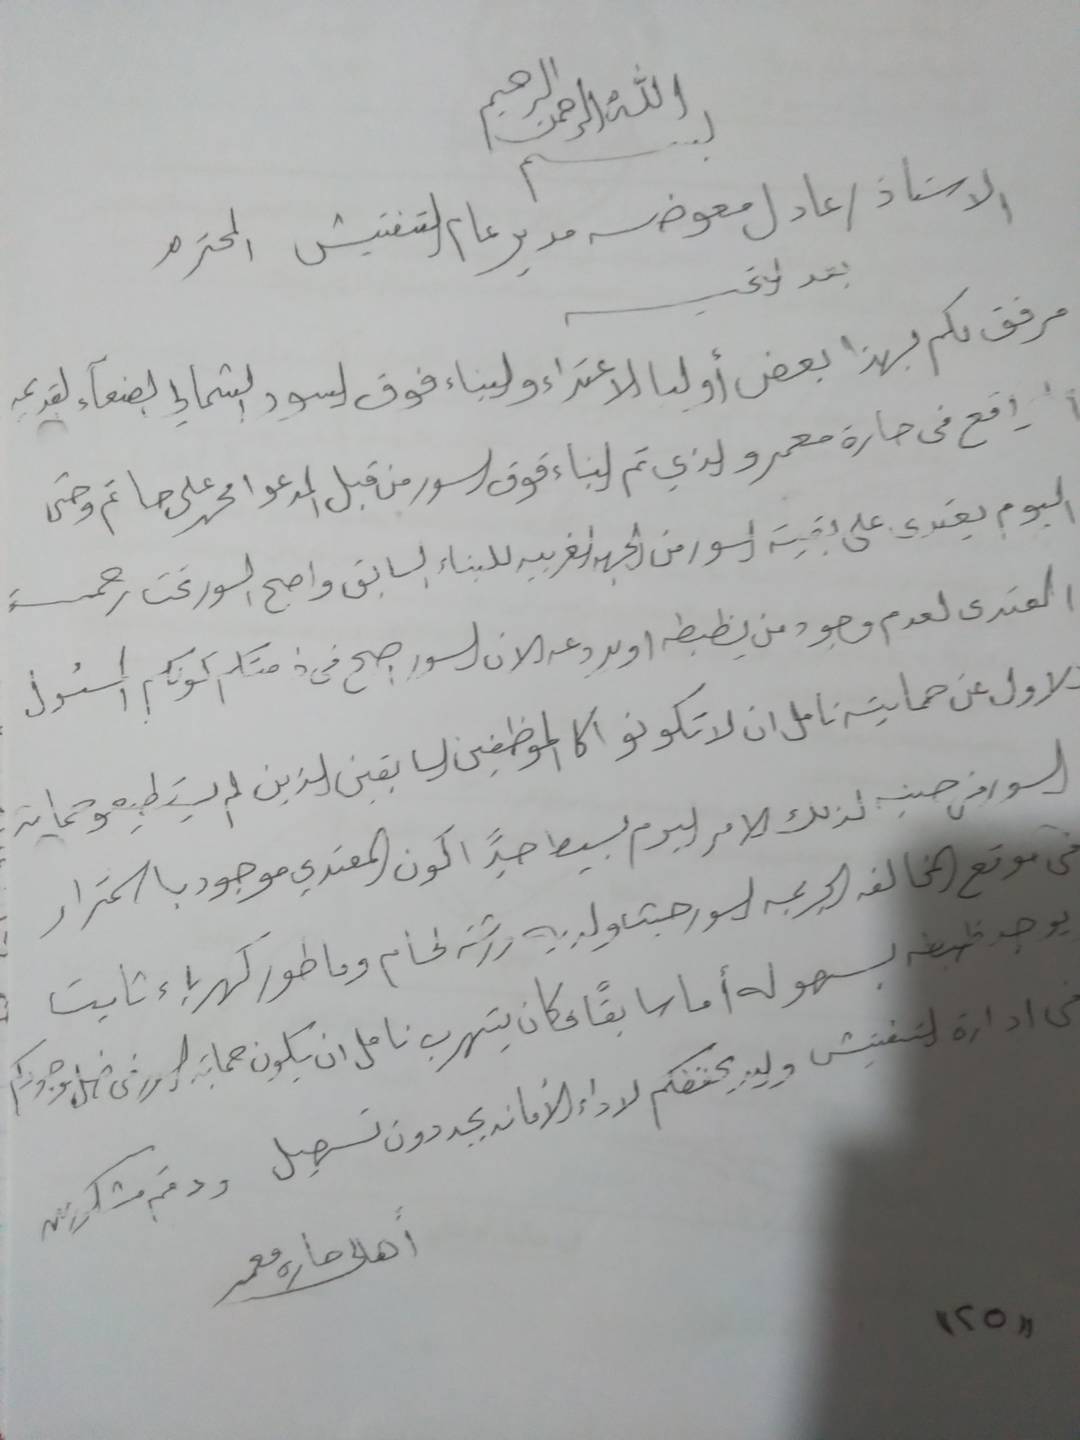 بسم الله الرحمن الرحيم
الاستاذ / عادل معوضه مدير عام التفتيش المحترم
بعد التحيه
مرفق لكم بهذا بعض أوليا الاعتداء والبناء فوق السور الشمالي لصنعاء القديمه
الواقع في حارة معمر والذي تم البناء فوق السور من قبل المدعوا محمد علي حاتم وحتى
اليوم يعتدى على بقية السور من الجهه الغربيه للبناء السابق واصبح السور تحت رحمة
المعتدى لعدم وجود من يظبطه او يردعه الان السور اصبح في ذمتكم كونكم المسئول
الاول عن حمايته نامل ان لا تكونو اكا الموظفين السابقين الذين لم يستطيعو حماية
السور في حينه لذلك الامر اليوم بسيط جداً اكون المعتدي موجود با ستمرار
في موقع المخالفه الجريمه السور حيث ولديه ورشة لحام وماطور كهرباء ثابت
يوجد ظبطه بسهوله أما سابقاً كان يتهرب نامل ان يكون حماية السور في ظل وجودكم
في ادارة التفتيش وليد يحفظكم لاداء الأمانه بجد دون تسهيل ودمتم مشكورين
أهالي حارة معمر
"٢٥"